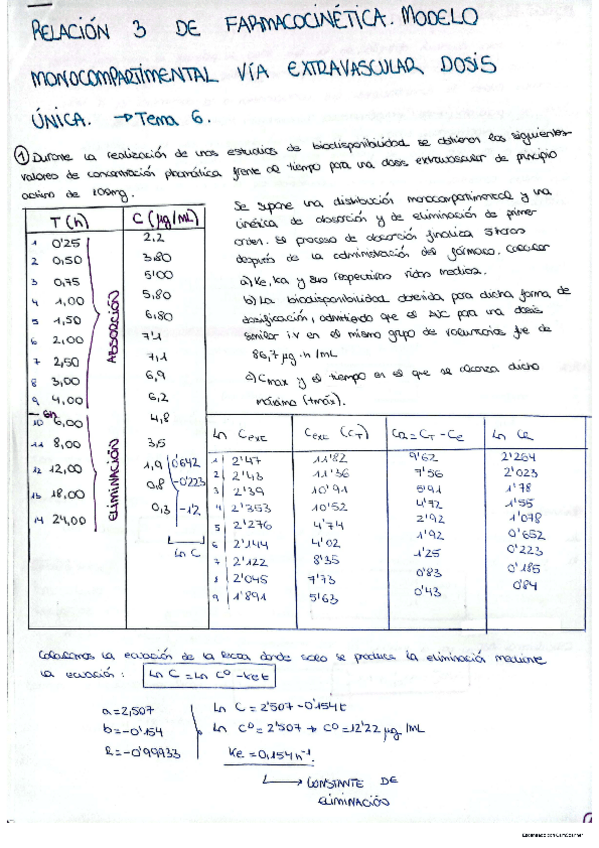 RELACIÓN 3 DE FARMACOCINÉTICA. MODELO
MONOCOMPARTIMENTAL VÍA EXTRAVASCULAR DOSIS
ÚNICA. → Tema 6.
① Durante la realización de unos estudios de biodisponibilidad se obtienen los siguientes
valores de concentración plasmática frente al tiempo para una dosis extravascular de principio
activo de 100mg.
Se supone una distribución monocompartimental y una
cinética de absorción y de eliminación de primer
orden. El proceso de absorción finaliza 5 horas
después de la administración del fármaco. Calcular
a) Ke, Ka y sus respectivas vidas medias.
b) La biodisponibilidad obtenida para dicha forma de
dosificación, admitiendo que el AUC para una dosis
similar i.v en el mismo grupo de voluntarios fue de
86,7 µg·h/mL
c) Cmax y el tiempo en el que se alcanza dicho
máximo (tmáx).
T (h) C (µg/mL)
1 0'25 2,2
2 0,50 3,80
3 0,75 5'00
4 1,00 5,80
5 1,50 6,80
6 2,00 7'1
7 2,50 7,1
8 3,00 6,9
9 4,00 6,2
10 6,00 4,8
11 8,00 3,5
12 12,00 1,9 0'642
18,00 0,8 -0'223
14 24,00 0,3 -1'2
ABSORCIÓN
ELIMINACIÓN
Ln C
Ln Cexc Cexc (CT) CR = CT - Ce Ln CR
1 2'47 11'82 9'62 2'264
2 2'43 11'36 7'56 2'023
3 2'39 10'91 5'91 1'78
4 2'353 10'52 4'72 1'55
5 2'276 4'74 2'92 1'078
6 2'144 4'02 1'92 0'652
7 2'122 8'35 1'25 0'223
8 2'045 7'73 0'83 0'185
9 1'891 5'63 0'43 0'84
Calculamos la ecuación de la recta donde solo se produce la eliminación mediante
la ecuación: Ln C = Ln C⁰ - Ke t
a = 2,507
b = -0'154
R = -0'99933
Ln C = 2'507 - 0'154t
Ln C⁰ = 2'507 → C⁰ = 12'22 µg/mL
Ke = 0,154 h⁻¹
→ CONSTANTE DE
ELIMINACIÓN